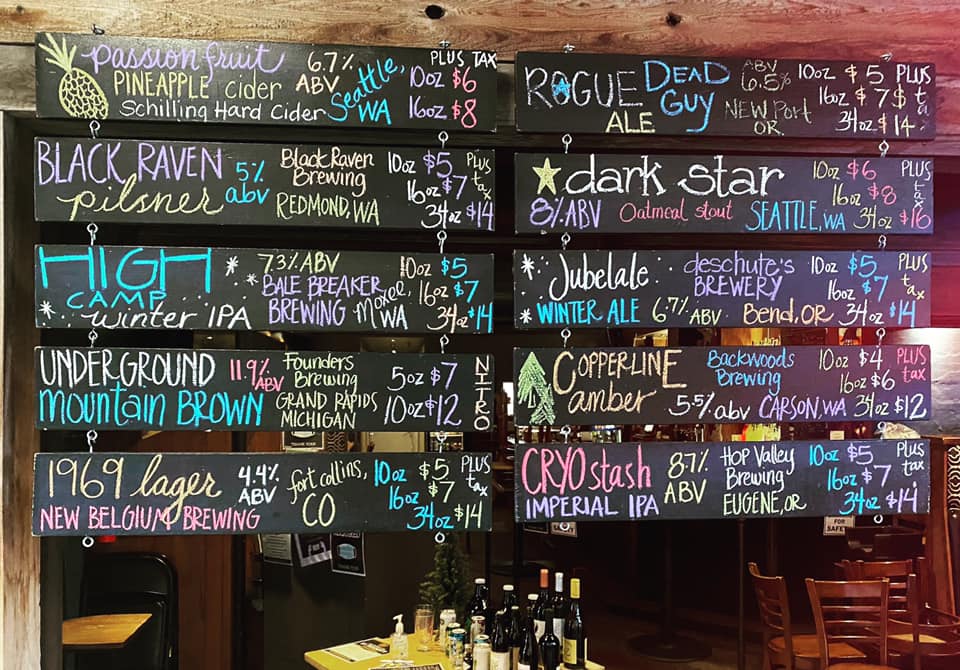 Passion fruit
PINEAPPLE cider
Schilling Hard Cider
6.7%
ABV
Seattle,
WA
PLUS TAX
10oz $6
16oz $8
BLACK RAVEN
pilsner
5%
abv
Black Raven
Brewing
REDMOND, WA
10oz $5
16oz $7
34oz $14
Plus
tax
HIGH
CAMP
winter IPA
7.3% ABV
BALE BREAKER
BREWING
Moxee,
WA
10oz $5
16oz $7
34oz $14
UNDERGROUND
Mountain BROWN
11.9%
ABV
Founders
Brewing
GRAND RAPIDS
MICHIGAN
5oz $7
10oz $12
NITRO
1969 lager
NEW BELGIUM BREWING
4.4%
ABV
fort collins,
CO
10oz $5
16oz $7
34oz $14
Plus
tax
ROGUE
DEAD
GUY
ALE
ABV
6.5%
NEW Port
OR.
10oz $5
16oz $7$
34oz $14
Plus
ta
dark star
8% ABV
Oatmeal stout
SEATTLE, WA
10oz $6
16oz $8
34oz $16
PLUS
tax
Jubelale
WINTER ALE
deschute's
BREWERY
6.7% ABV
Bend, OR
10oz $5
16oz $7
34oz $14
PLUS
tax
COPPERLINE
amber
Backwoods
Brewing
5.5% abv
CARSON, WA
10oz $4
16oz $6
34oz $12
PLUS
tax
CRYO stash
IMPERIAL IPA
8.7%
ABV
Hop Valley
Brewing
EUGENE, OR
10oz $5
16oz $7
34oz $14
Plus
tax
FOR
SAFE